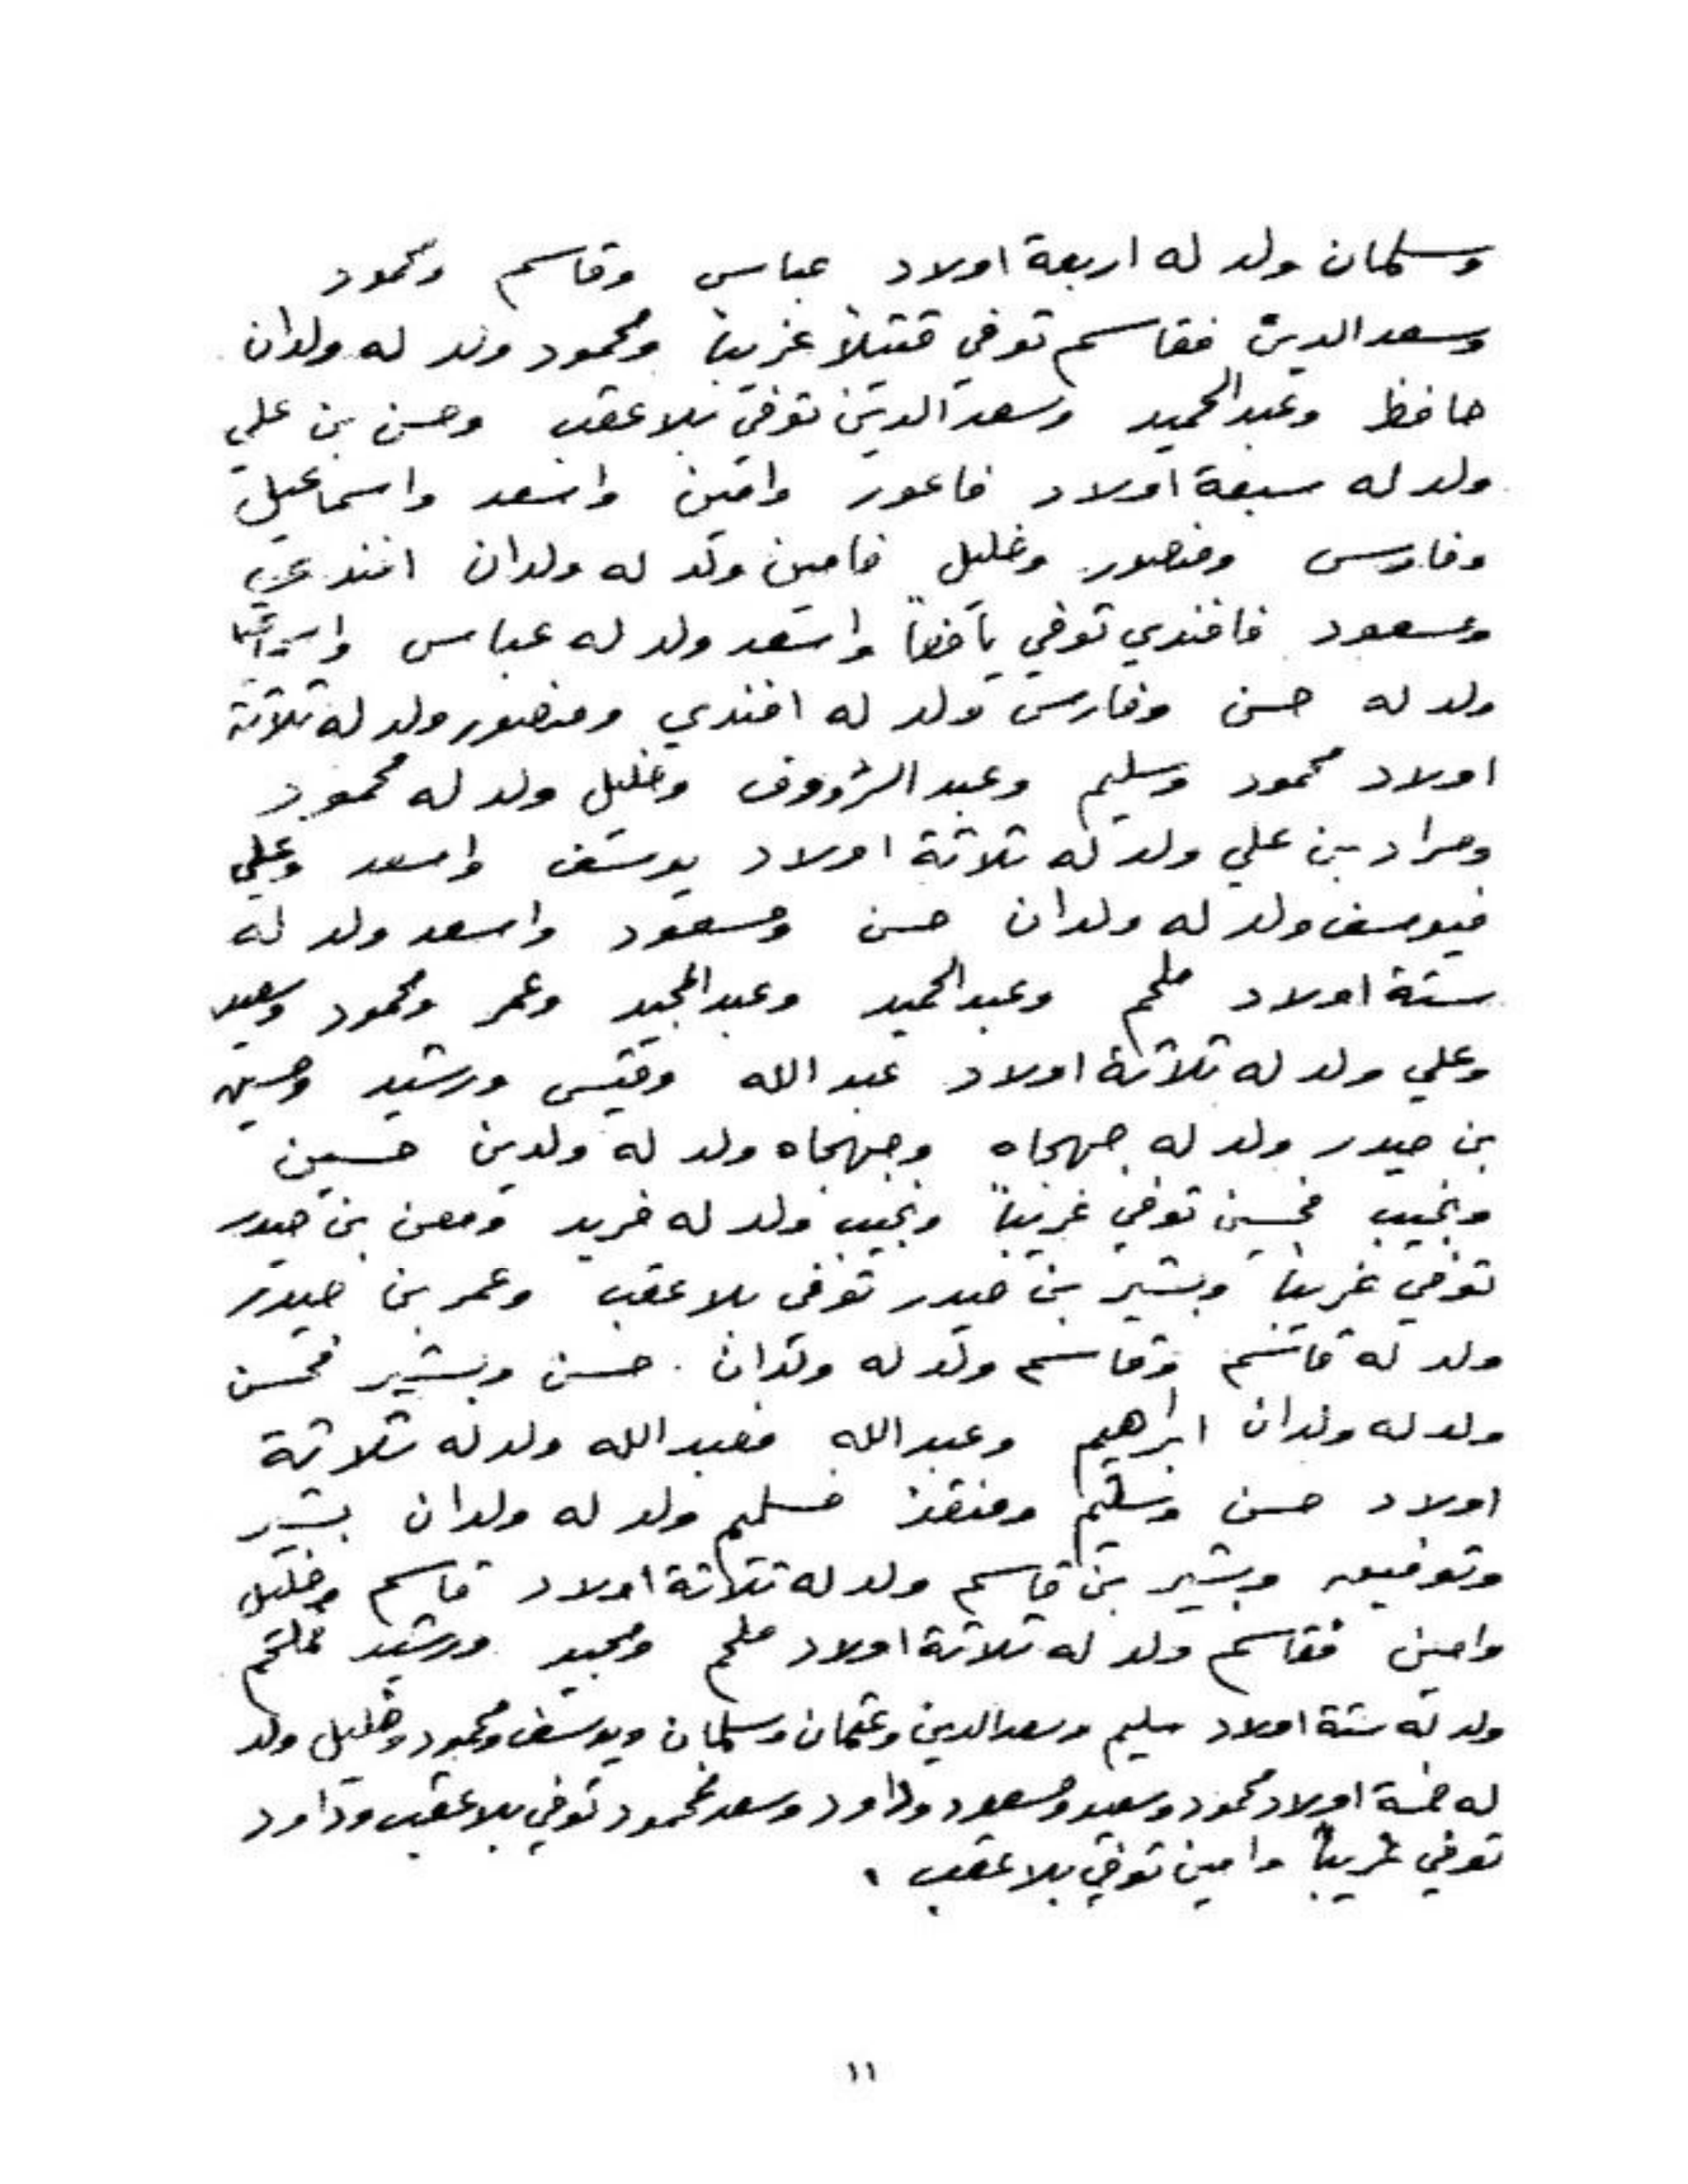 وسلمان ولد له اربعة اولاد عباس وقاسم ومحمود
وسعد الدين فقاسم توفي قتيلاً غريباً ومحمود ولد له ولدان
حافظ وعبد الحميد وسعد الدين توفي بلا عقب وحسن بن علي
ولد له سبعة اولاد فاعور وامين واسعد واسماعيل
وفارس ومنصور وخليل فامين ولد له ولدان افندي
ومسعود فافندي توفي واسعد ولد له عباس
ولد له حسن وفارس ولد له افندي ومنصور ولد له ثلاثة
اولاد محمود وسليم وعبد الرؤوف وخليل ولد له محمود
ومراد بن علي ولد له ثلاثة اولاد يوسف واسعد وعلي
فيوسف ولد له ولدان حسن ومسعود واسعد ولد له
ستة اولاد ملحم وعبد الحميد وعبد المجيد وعمر ومحمود وسعيد
وعلي ولد له ثلاثة اولاد عبد الله وقيس ورشيد وحسين
بن حيدر ولد له جهجاه وجهجاه ولد له ولدين حسين
ونجيب فحسين توفي غريباً ونجيب ولد له فريد ومعن بن حيدر
توفي غريباً وبشير بن حيدر توفى بلا عقب وعمر بن حيدر
ولد له قاسم وقاسم ولد له ولدان حسن وبشير فحسن
ولد له ولدان ابراهيم وعبد الله فعبد الله ولد له ثلاثة
اولاد حسن وسليم ومنقذ فسليم ولد له ولدان بشير
وتوفيق وبشير بن قاسم ولد له ثلاثة اولاد قاسم وخليل
وامين فقاسم ولد له ثلاثة اولاد ملحم ومجيد ورشيد فملحم
ولد له ستة اولاد سليم وسعد الدين وعثمان وسلمان ويوسف ومحمود وخليل ولد
له خمسة اولاد محمود وسعيد ومسعود وداود وسعد فمحمود توفي بلا عقب وداود
توفي غريباً وامين توفي بلا عقب .
١١